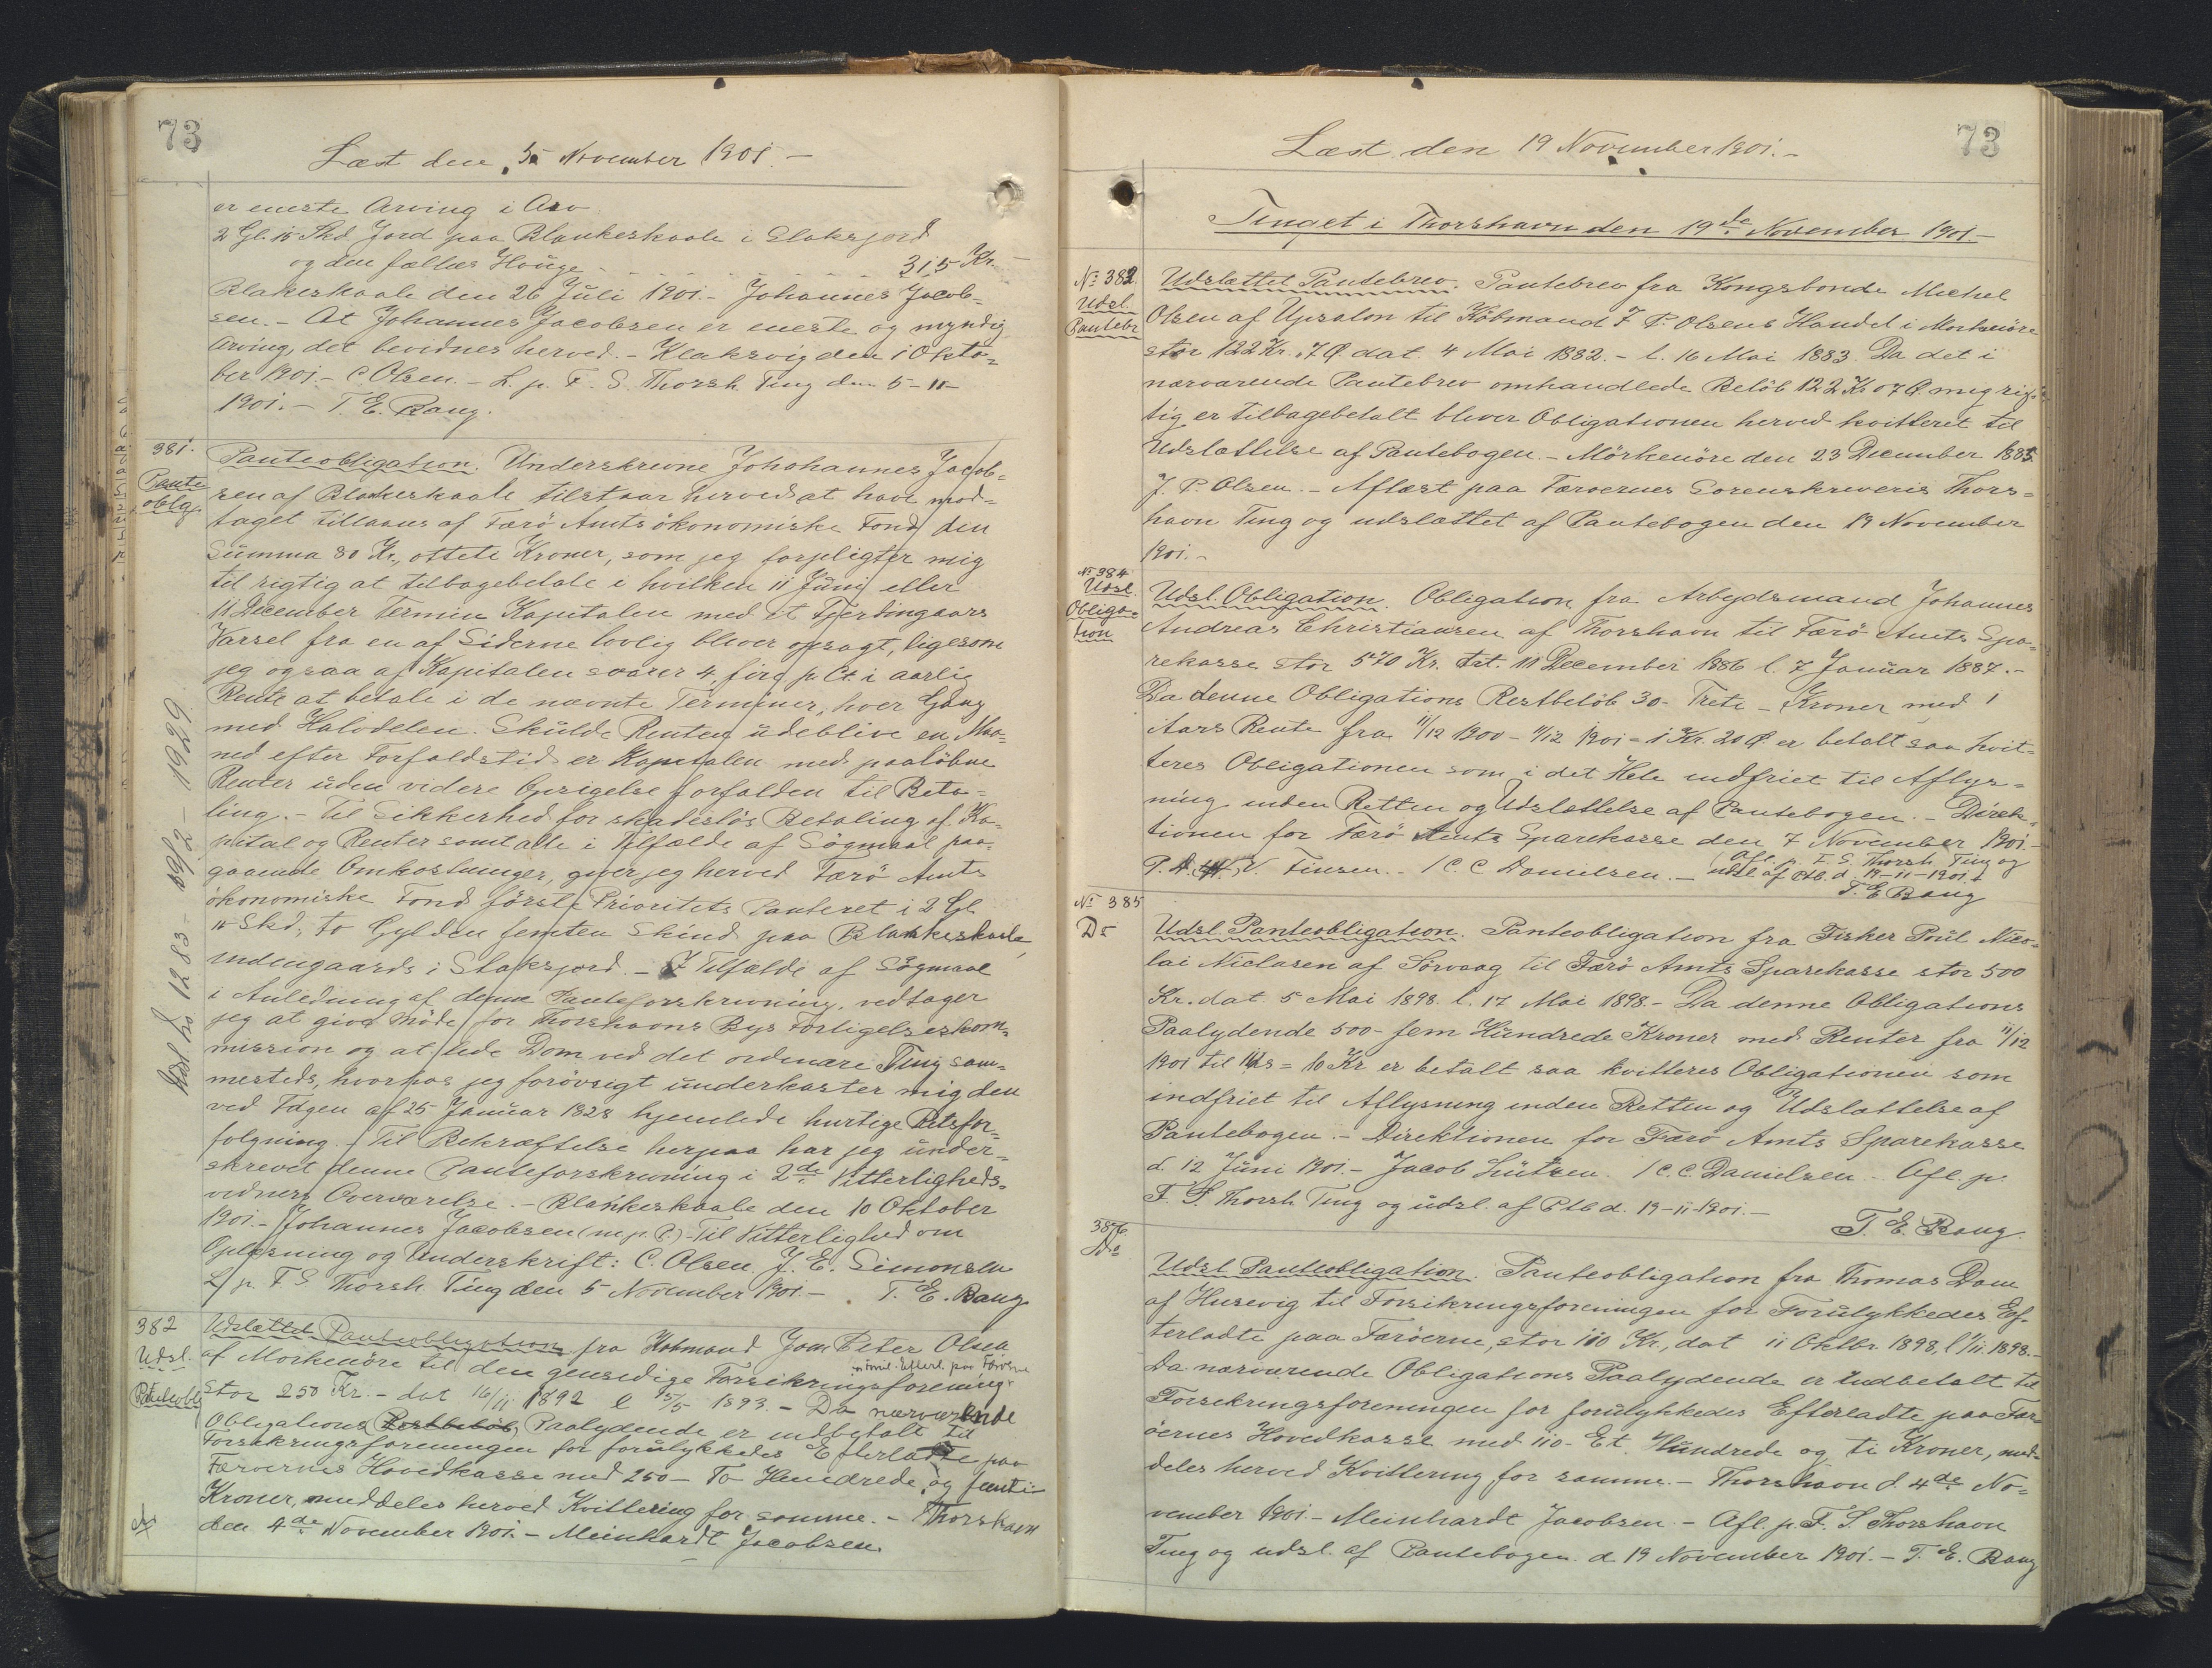 73
Læst den 5 November 1901.-
er eneste Arving i Arv
2 Gl. 15 Skd Jord paa Blankeskaale i Slaksjord
og den fælles Houge - - - - - - 315 Kr. -
Blakeskaale den 26 Juli 1901. - Johannes Jacob=
sen. - At Johannes Jacobsen er eneste og myndig
Arving, det bevidnes herved. - Klaksvig den 1 Okto=
ber 1901. - C. Olsen. - L. p. F. S. Thorsh. Ting den 5-11-
1901. - T. E. Bang.
381.
Pante
oblg.
Panteobligation. Underskrevne Johohannes Jacob=
sen af Blankeskaale tilstaar herved at have mod=
taget tillaans af Færö Amts ökonomiske Fond den
Summa 80 Kr., ottete Kroner, som jeg forpligter mig
til rigtig at tilbagebetale i hvilken 11 Juni eller
11 December Termin Kapitalen med et Fjerdingaars
Varsel fra en af Siderne lovlig bliver opsagt, ligesom
jeg ogsaa af Kapitalen svarer 4, fire p. Ct. i aarlig
Rente at betale i de nævnte Terminer, hver Gang
med Halvdelen. Skulde Renten udeblive en Maa=
ned efter Forfaldstid er Kapitalen med paalöbne
Renter uden videre Opsigelse forfalden til Beta=
ling. - Til Sikkerhed for skadeslös Betaling af Ka=
pital og Renter samt alle i Tilfælde af Sögmaal paa=
gaaende Omkostninger, giver jeg herved Færö Amts
ökonomiske Fond förste Prioritets Panteret i 2 Gl.
15 Skd., to Gylden femten Skind paa Blankeskaale,
indengaards i Slaksjord. - I Tilfælde af Sögmaal
i Anledning af denne Panteforskrivning, vedtager
jeg at give Möde for Thorshavns Bys Forligelseskom=
mission og at lide Dom ved det ordinære Ting sam=
mesteds, hvorhos jeg forövrigt underkaster mig den
ved Fdgen af 25 Januar 1828 hjemlede hurtige Retsfor=
fölgning. - Til Bekræftelse herpaa har jeg under=
skrevet denne Panteforskrivning i 2de Vitterligheds=
vidners Overværelse. - Blankeskaale den 10 Oktober
1901. - Johannes Jacobsen (m. p. P.) - Til Vitterlighed om
Oplæsning og Underskrift: C. Olsen. J. E. Simonsen
L. p. F. S. Thorsh. Ting den 5 November 1901. - T. E. Bang
382
Udsl.
Panteoblg
Udslettet Panteobligation fra Kobmand Joen Peter Olsen
af Morkenöre til den gensidige Forsikringsforening
stor 250 Kr. - dat 16/11 1892 l 15/5 1893. - Da nærværende
Obligations Restbelöb Paalydende er indbetalt til
Forsikringsforeningen for forulykkedes Efterladte paa
Færoernes Hovedkasse med 250 - To Hundrede og femti
Kroner, meddeles herved Kvittering for samme. - Thorshavn
den 4de November 1901. - Meinhardt Jacobsen
73
Læst den 19 November 1901. -
Tinget i Thorshavn den 19de November 1901. -
No 383
Udsl.
Pantebr
Udslettet Pantebrev. Pantebrev fra Kongsbonde Michel
Olsen af Upsalon til Köbmand J. P. Olsens Handel i Morkenöre
stor 122 Kr. 7 Ø dat. 4 Mai 1882. - l. 16 Mai 1883. Da det i
nærværende Pantebrev omhandlede Belöb 122 Kr 07 Ø mig rig=
tig er tilbagebetalt bliver Obligationen herved kvitteret til
Udslættelse af Pantebogen. - Mörkenöre den 23 December 1885
J. P. Olsen. - Aflæst paa Færoernes Sorenskriveris Thors=
havn Ting og udslættet af Pantebogen den 19 November
1901. -
No 384
Udsl.
Obliga=
tion
Udsl. Obligation. Obligation fra Arbejdsmand Johannes
Andreas Christiansen af Thorshavn til Færö Amts Spa=
rekasse stor 570 Kr. dat. 11 December 1886 l. 7 Januar 1887. -
Da denne Obligations Restbelöb 30 - Treti - Kroner med 1
Aars Rente fra 11/12 1900 - 11/12 1901 = 1 Kr. 20 Ø er betalt saa kvit=
teres Obligationen som i det Hele indfriet til Aflys=
ning inden Retten og Udslettelse af Pantebogen. - Direk=
tionen for Færö Amts Sparekasse den 7 November 1901. -
V. Finsen. - / C. C. Danielsen. - Afl. p. F. S. Thorsh. Ting og
udsl. af Ptb. d. 19-11-1901.
T. E Bang
No 385
Do
Udsl. Panteobligation. Panteobligation fra Fisker Poul Nico=
lai Niclasen af Sörvaag til Færö Amts Sparekasse stor 500
Kr. dat. 5 Mai 1898. l. 17 Mai 1898. - Da denne Obligations
Paalydende 500 - fem Hundrede Kroner med Renter fra 11/12
1901 til Ds = 10 Kr er betalt saa kvitteres Obligationen som
indfriet til Aflysning inden Retten og Udslættelse af
Pantebogen. - Direktionen for Færö Amts Sparekasse
d. 12 Juni 1901. - Jacob Lützen / C. C. Danielsen - Afl. p.
F. S. Thorsh Ting og udsl. af Ptb d. 19-11-1901. -
T. E Bang.
386
Do
Udsl Panteobligation. Panteobligation fra Thomas Dam
af Husevig til Forsikringsforeningen for Forulykkedes Ef=
terladte paa Færöerne, stor 110 Kr., dat 11 Oktbr. 1898, l /11 1898. -
Da nærværende Obligations Paalydende er indbetalt til
Forsikringsforeningen for forulykkedes Efterladte paa Fær=
öernes Hovedkasse med 110 - Et Hundrede og ti Kroner, med=
deles herved Kvittering for samme. - Thorshavn d. 4de No=
vember 1901. - Meinhardt Jacobsen. - Afl. p. F. S. Thorshavn
Ting og udsl. af Pantebogen d 19 November 1901. - T. E. Bang